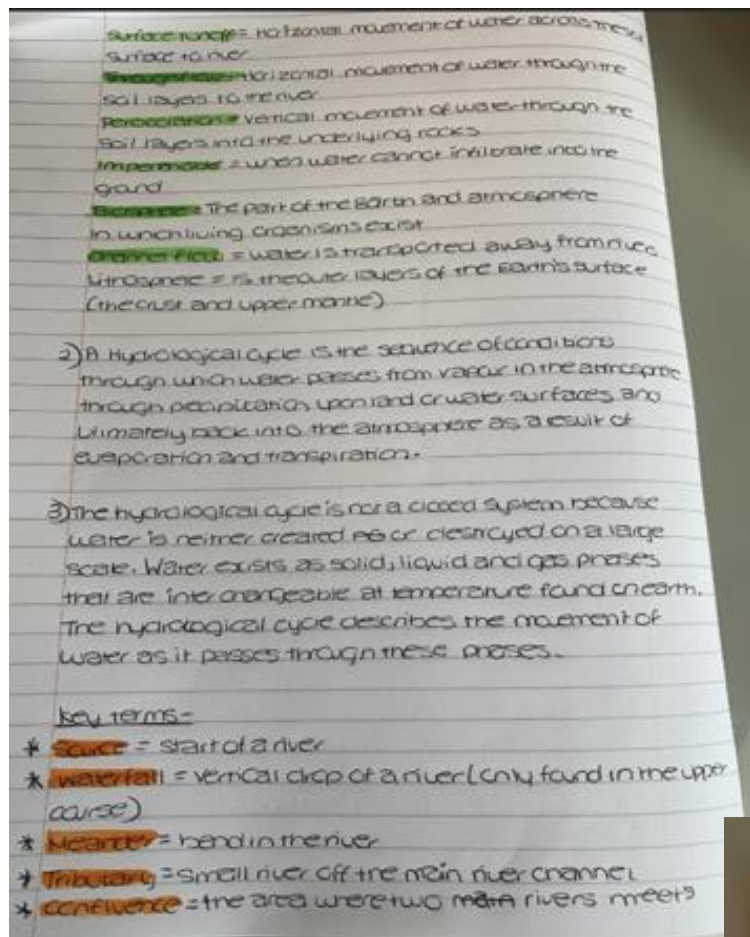 Surface runoff = Horizontal movement of water across the
surface to river
Throughflow = Horizontal movement of water through the
soil layers to the river
Percolation = vertical movement of water through the
soil layers into the underlying rocks
Impermeable = when water cannot infiltrate into the
ground
Biosphere = The part of the Earth and atmosphere
in which living organisms exist
Channel Flow = water is transported away from river
Lithosphere = is the outer layers of the Earth's surface
(the crust and upper mantle)
2) A Hydrological cycle is the sequence of conditions
through which water passes from vapour in the atmosphere
through precipitation upon land or water surfaces and
ultimately back into the atmosphere as a result of
evaporation and transpiration.
3) The hydrological cycle is not a closed system because
water is neither created or destroyed on a large
scale. Water exists as solid, liquid and gas phases
that are interchangeable at temperature found on earth.
The hydrological cycle describes the movement of
water as it passes through these phases.
Key terms-
* Source = start of a river
* Waterfall = vertical drop of a river (only found in the upper
course)
* Meander = bend in the river
* Tributary = small river off the main river channel
* Confluence = the area where two main rivers meets